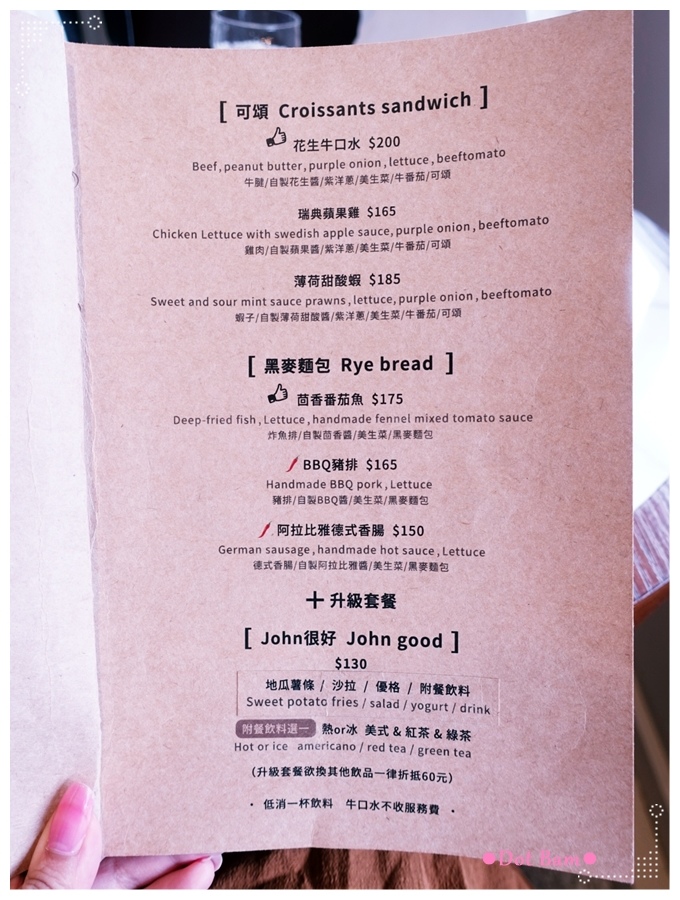 [ 可頌 Croissants sandwich ]
花生牛口水 $200
Beef, peanut butter, purple onion, lettuce, beeftomato
牛腱/自製花生醬/紫洋蔥/美生菜/牛番茄/可頌
瑞典蘋果雞 $165
Chicken Lettuce with swedish apple sauce, purple onion, beeftomato
雞肉/自製蘋果醬/紫洋蔥/美生菜/牛番茄/可頌
薄荷甜酸蝦 $185
Sweet and sour mint sauce prawns, lettuce, purple onion, beeftomato
蝦子/自製薄荷甜酸醬/紫洋蔥/美生菜/牛番茄/可頌
[ 黑麥麵包 Rye bread ]
茴香番茄魚 $175
Deep-fried fish, Lettuce, handmade fennel mixed tomato sauce
炸魚排/自製茴香醬/美生菜/黑麥麵包
BBQ豬排 $165
Handmade BBQ pork, Lettuce
豬排/自製BBQ醬/美生菜/黑麥麵包
阿拉比雅德式香腸 $150
German sausage, handmade hot sauce, Lettuce
德式香腸/自製阿拉比雅醬/美生菜/黑麥麵包
+ 升級套餐
[ John很好 John good ]
$130
地瓜薯條 / 沙拉 / 優格 / 附餐飲料
Sweet potato fries / salad / yogurt / drink
附餐飲料選一 熱or冰 美式 & 紅茶 & 綠茶
Hot or ice americano / red tea / green tea
(升級套餐欲換其他飲品一律折抵60元)
· 低消一杯飲料 牛口水不收服務費 ·